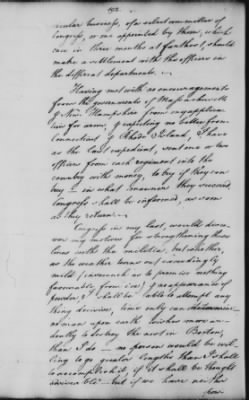 102.
cular business, of a select committee of
Congress, or one appointed by them, which
can in three months at farthest, should
make a settlement with the officers in
the different departments.
Having met with no encouragement
from the governments of Massachusetts
& New Hampshire from my applica-
tion for arms; & expecting no better from
Connecticut & Rhode Island, I have
as the last expedient, sent one or two
officers from each regiment into the
country with money, to try if they can
buy — in what manner they succeed,
Congress shall be informed, as soon
as they return.
Congress in my last, would discov-
er my motives for strengthening these
lines with the militia, but whether,
as the weather turns out exceedingly
mild (insomuch as to promise nothing
favourable from ice) & no appearance of
powder, I shall be able to attempt any
thing decisive, time only can determine—
no man upon earth wishes more ar-
dently to destroy the nest in Boston,
than I do — no person would be wil-
ling to go greater lengths than I shall
to accomplish it, if it shall be thought
advisable — but if we have neither